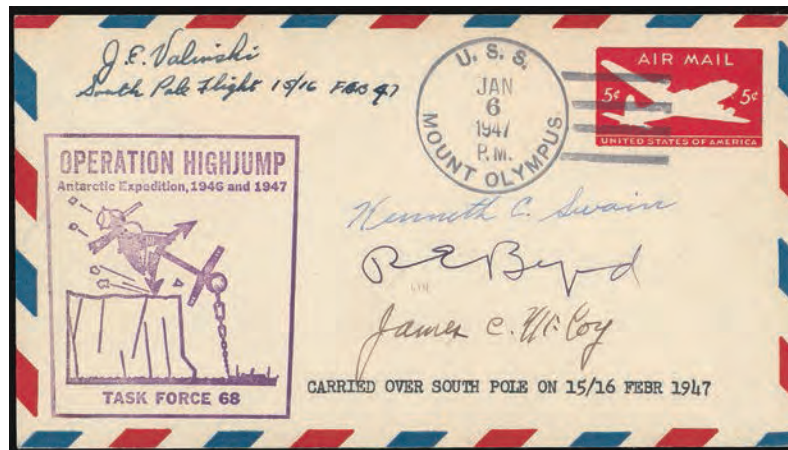 J.E. Valinski
South Pole Flight 15/16 FEB 47
U.S.S.
JAN
6
1947
P.M.
MOUNT OLYMPUS
AIR MAIL
5¢ 5¢
UNITED STATES OF AMERICA
OPERATION HIGHJUMP
Antarctic Expedition, 1946 and 1947
TASK FORCE 68
Kenneth C. Swain
R E Byrd
James C. McCoy
CARRIED OVER SOUTH POLE ON 15/16 FEBR 1947